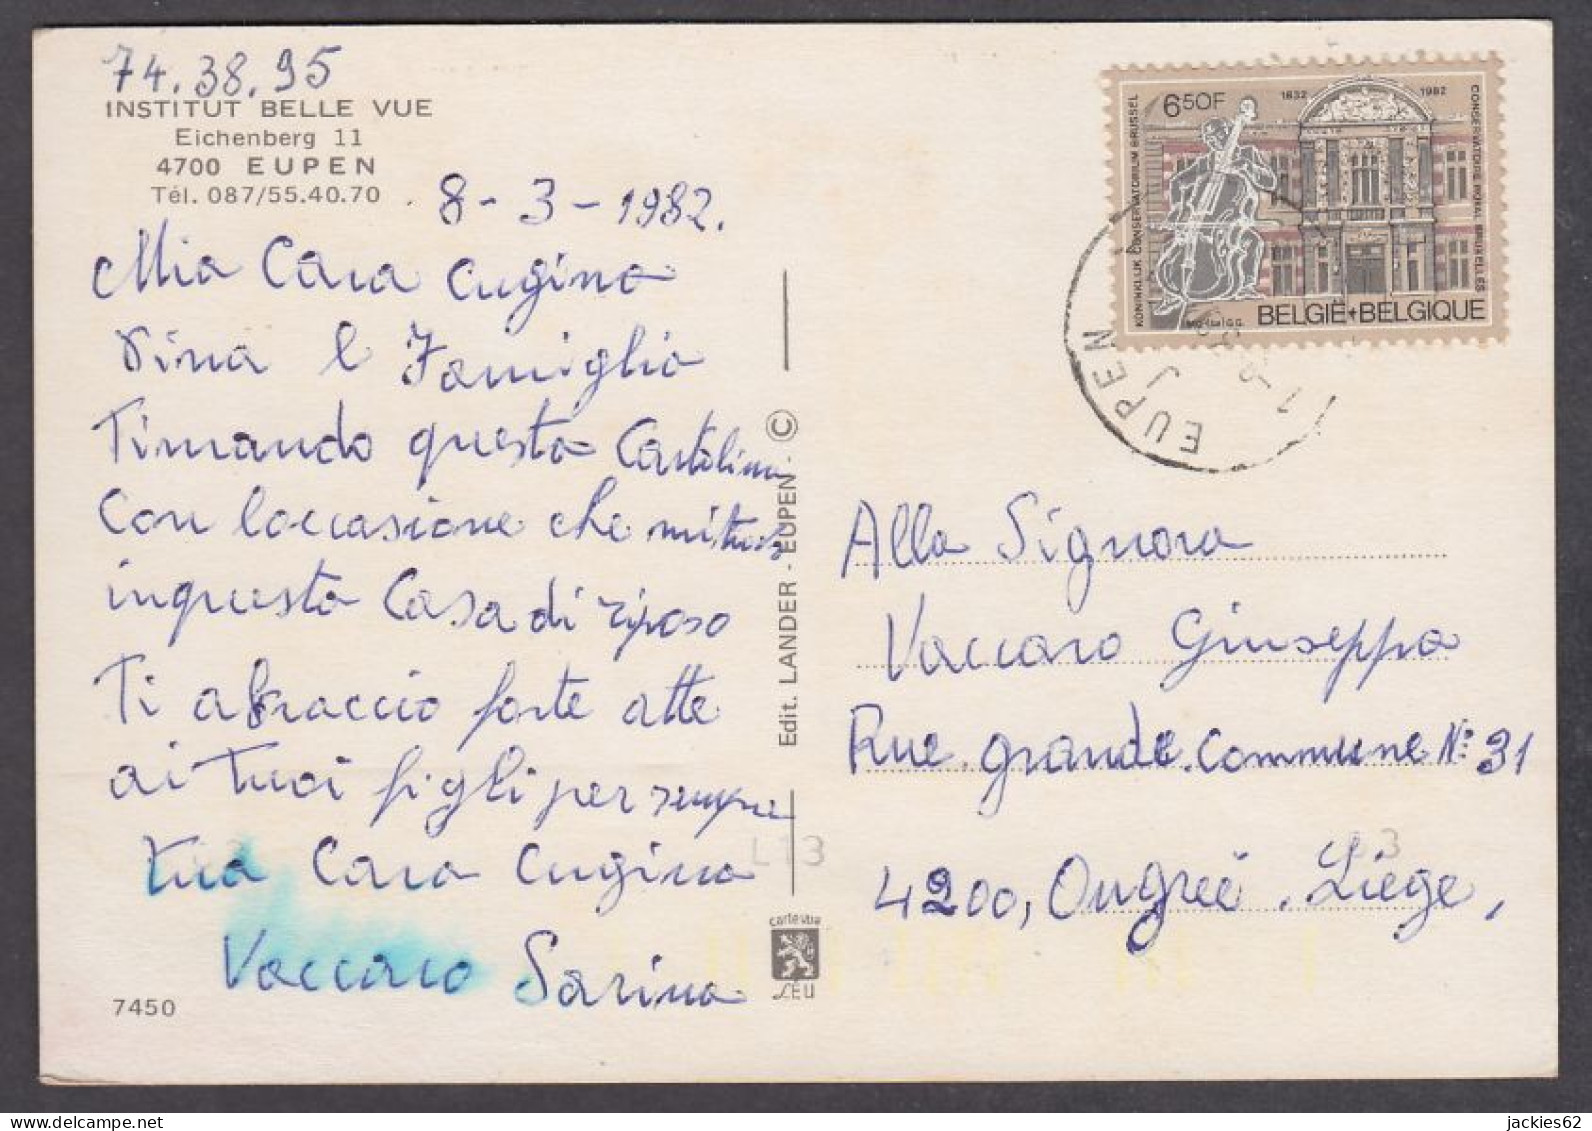 74.38.95
INSTITUT BELLE VUE
Eichenberg 11
4700 EUPEN
Tél. 087/55.40.70
8-3-1982.
Mia Cara Cugina
Vina e Famiglia
Timando questa Cartolina
Con loccasione che mi
inquesta Casa di riposo
Ti abraccio forte atte
ai Tuoi figli per sempre
tua Cara Cugina
Vaccaro Sarina
7450
Edit. LANDER - EUPEN ©
carte vue
LEU
L13
650F
1832 1982
KONINKLIJK CONSERVATORIUM BRUSSEL
CONSERVATOIRE ROYAL BRUXELLES
BELGIË BELGIQUE
EUPEN
Alla Signora
Vaccaro Giuseppa
Rue grande Commune N° 31
4200, Ougreé. Liége,
jackies62